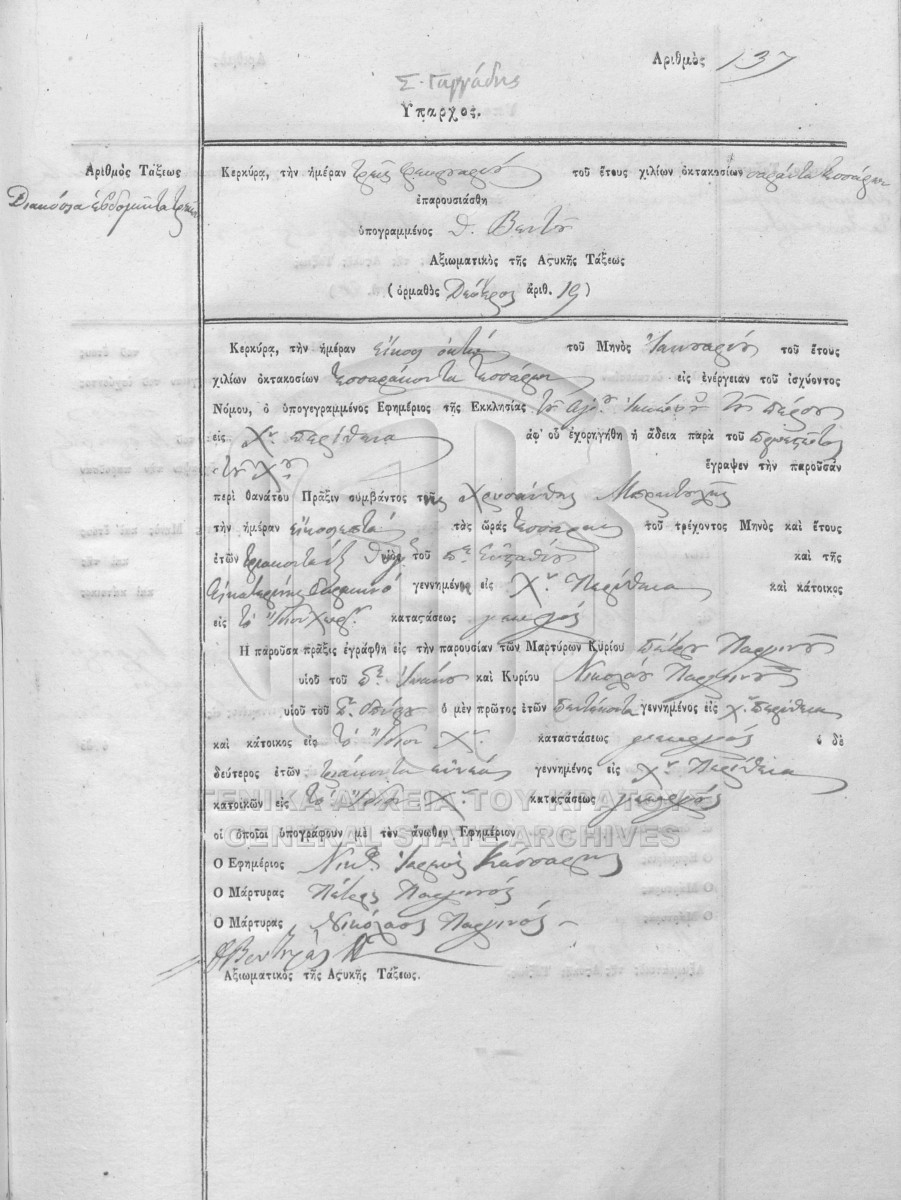 Αριθμὸς 137
Υπαρχος.
Αριθμὸς Τάξεως
Διακόσια ἑβδομῆντα τρία
Κερκύρα, τὴν ἡμέραν τρεῖς Φευρουαρίου τοῦ ἔτους χιλίων ὀκτακοσίων σαράντα τεσσάρων
ἐπαρουσιάσθη
ὑπογραμμένος Θ. Βεντ
Αξιωματικὸς τῆς Αςυκῆς Τάξεως
(ὁρμαθὸς Δεύτερος ἀριθ. 19)
Κερκύρα, τὴν ἡμέραν εἴκοσι ὀκτώ τοῦ Μηνὸς Ἰανουαρίου τοῦ ἔτους
χιλίων ὀκτακοσίων τεσσαράκοντα τεσσάρων εἰς ἐνέργειαν τοῦ ἰσχύοντος
Νόμου, ὁ ὑπογεγραμμένος Εφημέριος τῆς Εκκλησίας τοῦ Ἁγίου Ἰακώβου τοῦ Πέρσου
εἰς Χ. Περίθεια ἀφ᾽ οὗ ἐχορηγήθη ἡ ἄδεια παρὰ τοῦ
τοῦ Χ. ἔγραψεν τὴν παροῦσάν
περὶ θανάτου Πρᾶξιν συμβάντος τῆς Χρυσάνθης
τὴν ἡμέραν εἰκοσιεπτά τὰς ὥρας τέσσαρες τοῦ τρέχοντος Μηνὸς καὶ ἔτους
ἐτῶν τριάντα ἕξ τοῦ π. καὶ τῆς
Εἰκατερίνης γεννημένος εἰς Χ. Περίθεια καὶ κάτοικος
εἰς τὸ ἴδιον Χωρ. καταςάσεως
Η παροῦσα πρᾶξις ἐγράφθη εἰς τὴν παρουσίαν τῶν Μαρτύρων Κυρίου Πέτρου Παργινοῦ
υἱοῦ τοῦ π. καὶ Κυρίου Νικολάου Παργινοῦ
υἱοῦ τοῦ π. Σπύρου ὁ μὲν πρῶτος ἐτῶν πεντήκοντα γεννημένος εἰς Χ. Περίθεια
καὶ κάτοικος εἰς τὸ ἴδιον Χ. καταστάσεως γεωργός ὁ δὲ
δεύτερος ἐτῶν τριάκοντα εννεά γεννημένος εἰς Χ. Περίθεια
κατοικῶν εἰς τὸ ἴδιον Χ. καταςάσεως γεωργός
οἱ ὁποῖοι ὑπογράφουν μὲ τὸν ἄνωθεν Εφημέριον
Ο Εφημέριος Νικ. Ἱερεύς Κάσσαρης
Ο Μάρτυρας Πέτρος Παργινός
Ο Μάρτυρας Νικόλαος Παργινός
Αξιωματικὸς τῆς Αςυκῆς Τάξεως.
ΓΕΝΙΚΑ ΑΡΧΕΙΑ ΤΟΥ ΚΡΑΤΟΥΣ
GENERAL STATE ARCHIVES